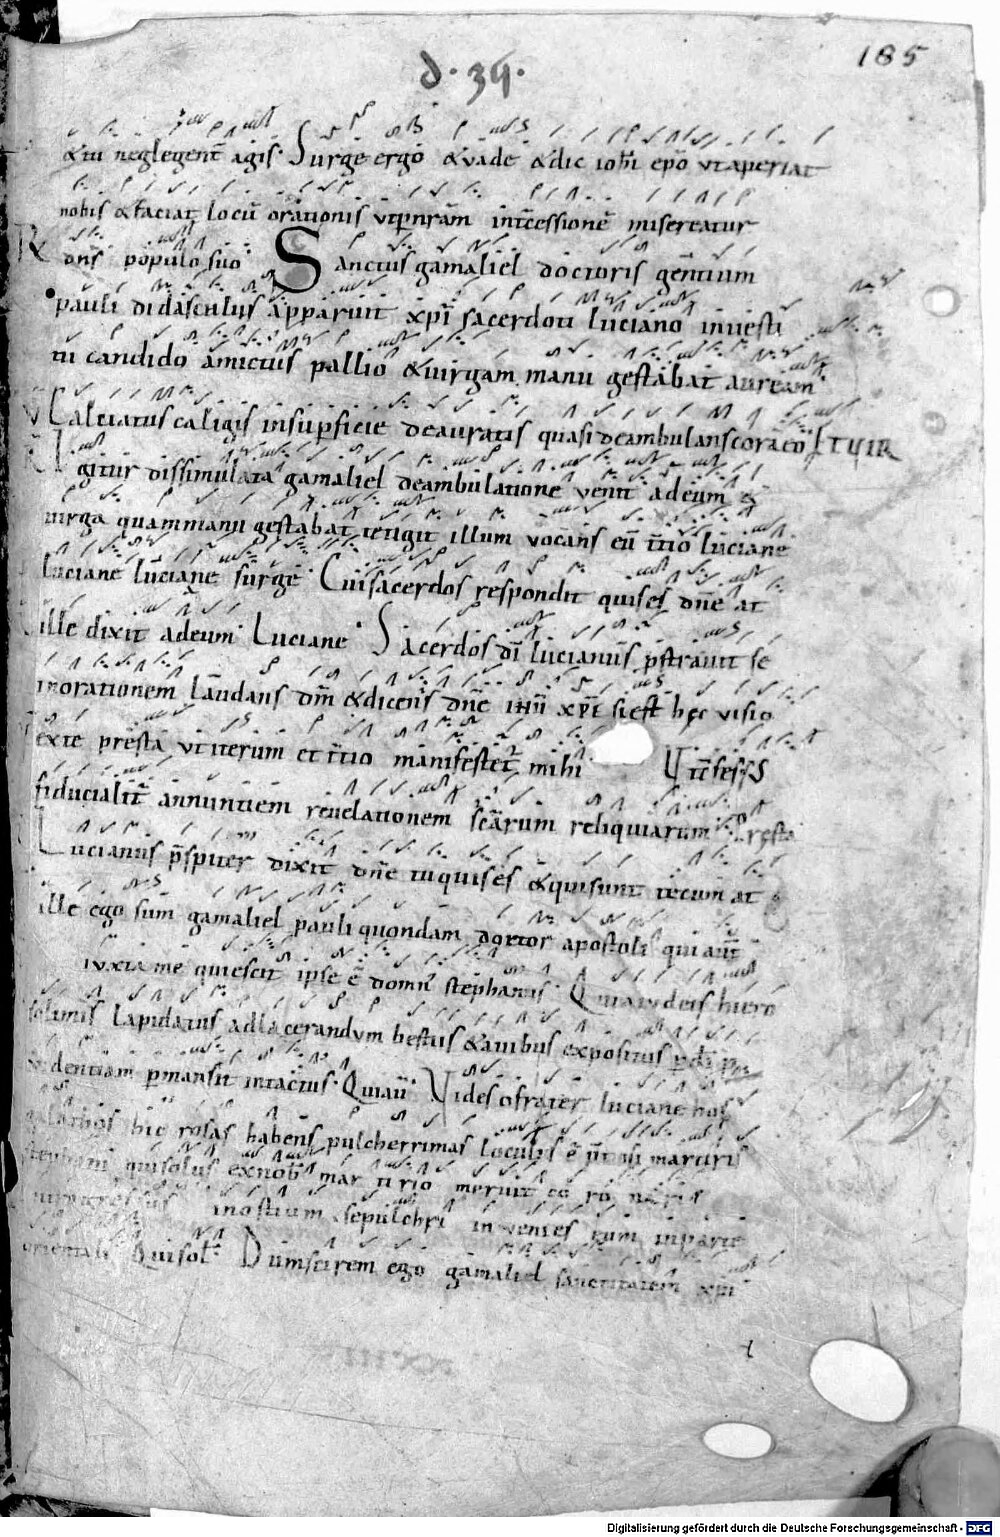 185
d. 34.
&tu neglegent̄ agis. Surge ergo &vade &dic ioh̄i ep̄o vt aperiat
nobis &faciat locū orationis vtp̄nr̄am int̄cessionē misereatur
dn̄s populo suo Sanctus gamaliel doctoris gentium
pauli didasculus apparuit xp̄i sacerdoti luciano in vesti
tu candido amictus pallio &virgam manu gestabat auream
V Calciatus caligis in sup̄ficie deauratis quasi deambulans corā eo ET VIR
R Igitur dissimulata gamaliel deambulatione venit ad eum &
virga quam manu gestabat tetigit illum vocans eū t̄tio luciane
luciane luciane surge. Cui sacerdos respondit quis es dn̄e at
ille dixit ad eum. Luciane. Sacerdos dī lucianus p̄strauit se
in orationem laudans dm̄ &dicens dn̄e ihū xp̄e si est hęc visio
ex te presta vt iterum et t̄tio manifestet̄ mihi Vt c̄fessus
fiducialit̄ annuntiem reuelationem sc̄arum reliquiarum. Presta
Lucianus p̄spiter dixit dn̄e tu quis es &qui sunt tecum at
ille ego sum gamaliel pauli quondam doctor apostoli qui aut̄
iuxta me quiescit ipse ē domn̄ stephanus. Qui a iudeis hiero
solimis lapidatus ad lacerandum bestiis &auibus expositus p̄ dī p̄
uidentiam p̄mansit intactus. Qui aut̄. Vides o frater luciane hos
calathos hic rosas habens pulcherrimas loculus ē p̄tosi martiris
stephani qui solus ex nob̄ martirio meruit coronari
in ostium sepulchri inuenies eum in parte
orientali. Qui sol̄. Dum scirem ego gamaliel sanctitatem xp̄i
Digitalisierung gefördert durch die Deutsche Forschungsgemeinschaft - DFG